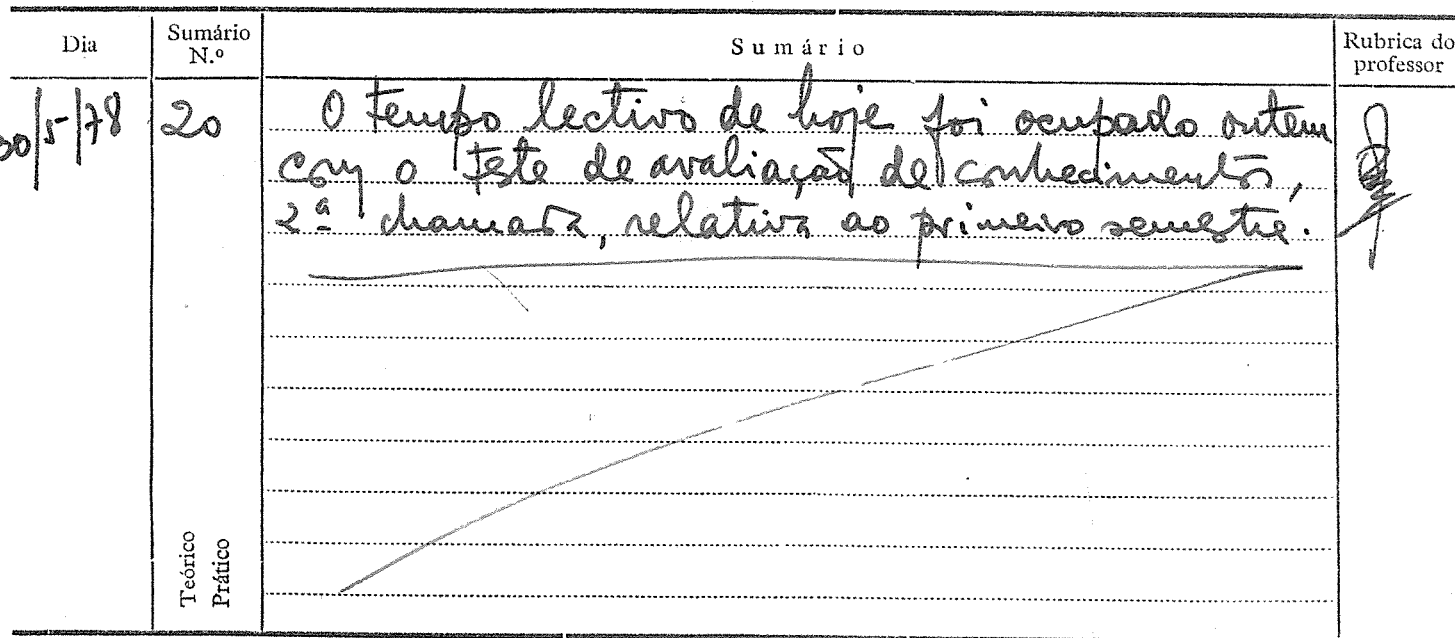 Dia
Sumário N.º
Sumário
Rubrica do professor
30/5/78
20
O tempo lectivo de hoje foi ocupado ontem
com o teste de avaliação de conhecimentos,
2ª chamada, relativa ao primeiro semestre.
Teórico
Prático